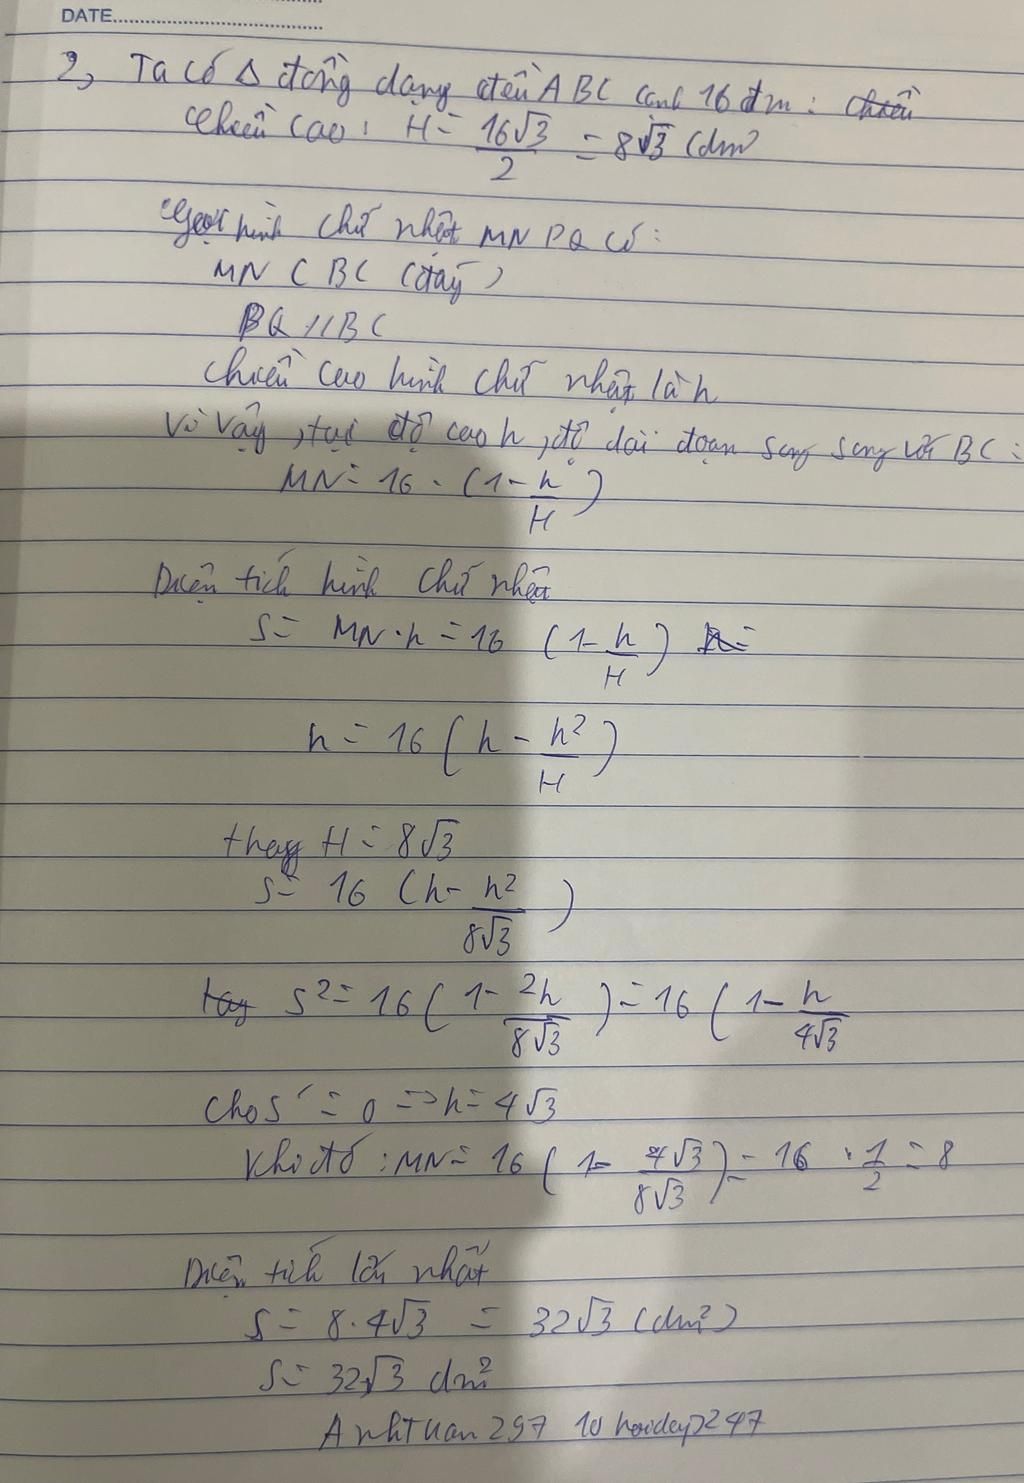 DATE
2, Ta có Δ đồng dạng đều ABC cạnh 16 dm : chiều
chiều cao : H = 16√3/2 = 8√3 (dm)
Gọi hình chữ nhật MNPQ có :
MN ⊂ BC (đáy)
PQ // BC
chiều cao hình chữ nhật là h
Vì vậy, tại độ cao h, độ dài đoạn song song với BC :
MN = 16 . (1 - h/H)
Diện tích hình chữ nhật
S = MN . h = 16 (1 - h/H) h =
h = 16 (h - h²/H)
thay H = 8√3
S = 16 (h - h²/8√3)
S² = 16 (1 - 2h/8√3) = 16 (1 - h/4√3
Cho S' = 0 => h = 4√3
Khi đó : MN = 16 (1 - 4√3/8√3) = 16 . 1/2 = 8
Diện tích lớn nhất
S = 8.4√3 = 32√3 (dm²)
S = 32√3 dm²
AnhTuan297 10 hoidap247